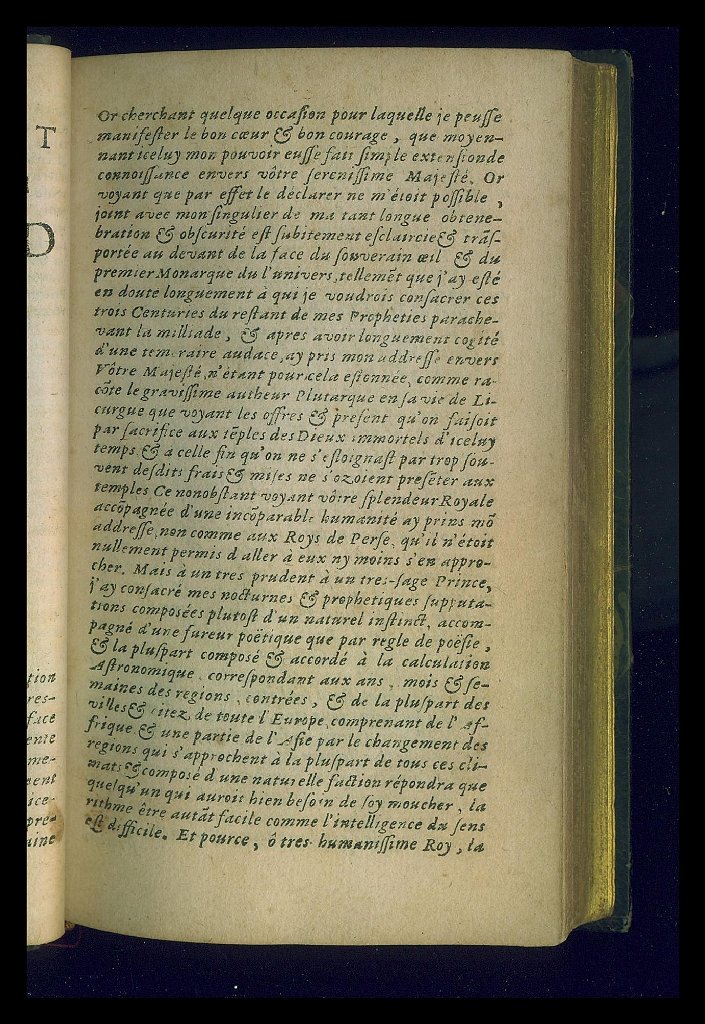 Or cherchant quelque occaſion pour laquelle je peuſſe
manifeſter le bon cœur & bon courage, que moyen-
nant iceluy mon pouvoir euſſe fait ſimple extenſion de
connoiſſance envers vôtre ſereniſſime Majeſté. Or
voyant que par effet le declarer ne m'étoit poſſible,
joint avec mon ſingulier de ma tant longue obtene-
bration & obſcurité eſt ſubitement eſclaircie & trãſ-
portée au devant de la face du ſouverain œil & du
premier Monarque du l'univers, tellemẽt que j'ay eſté
en doute longuement à qui je voudrois conſacrer ces
trois Centuries du reſtant de mes Propheties parache-
vant la milliade, & apres avoir longuement cogité
d'une temeraire audace, ay pris mon addreſſe envers
Vôtre Majeſté, n'étant pour cela eſtonnée, comme ra-
cõte le graviſſime autheur Plutarque en ſa vie de Li-
curgue que voyant les offres & preſent qu'on faiſoit
par ſacrifice aux tẽples des Dieux immortels d'iceluy
temps, & à celle fin qu'on ne s'eſloignaſt par trop ſou-
vent deſdits frais & miſes ne s'ozoient preſẽter aux
temples Ce nonobſtant voyant vôtre ſplendeur Royale
accõpagnée d'une incõparable humanité ay prins mõ
addreſſe, non comme aux Roys de Perſe, qu'il n'étoit
nullement permis d'aller à eux ny moins s'en appro-
cher. Mais à un tres prudent à un tres-ſage Prince,
j'ay conſacré mes nocturnes & prophetiques ſupputa-
tions compoſées plutoſt d'un naturel inſtinct, accom-
pagné d'une fureur poëtique que par regle de poëſie,
& la pluſpart compoſé & accordé à la calculation
Aſtronomique, correſpondant aux ans, mois & ſe-
maines des regions, contrées, & de la pluſpart des
villes & citez de toute l'Europe, comprenant de l'Af-
frique & une partie de l'Aſie par le changement des
regions qui s'approchent à la pluſpart de tous ces cli-
mats & compoſé d'une naturelle faction répondra que
quelqu'un qui auroit bien beſoin de ſoy moucher, la
rithme être autãt facile comme l'intelligence du ſens
eſt difficile. Et pource, ô tres-humaniſſime Roy, la
T
D
tion
res-
face
ente
me-
nent
ice-
pre-
uine